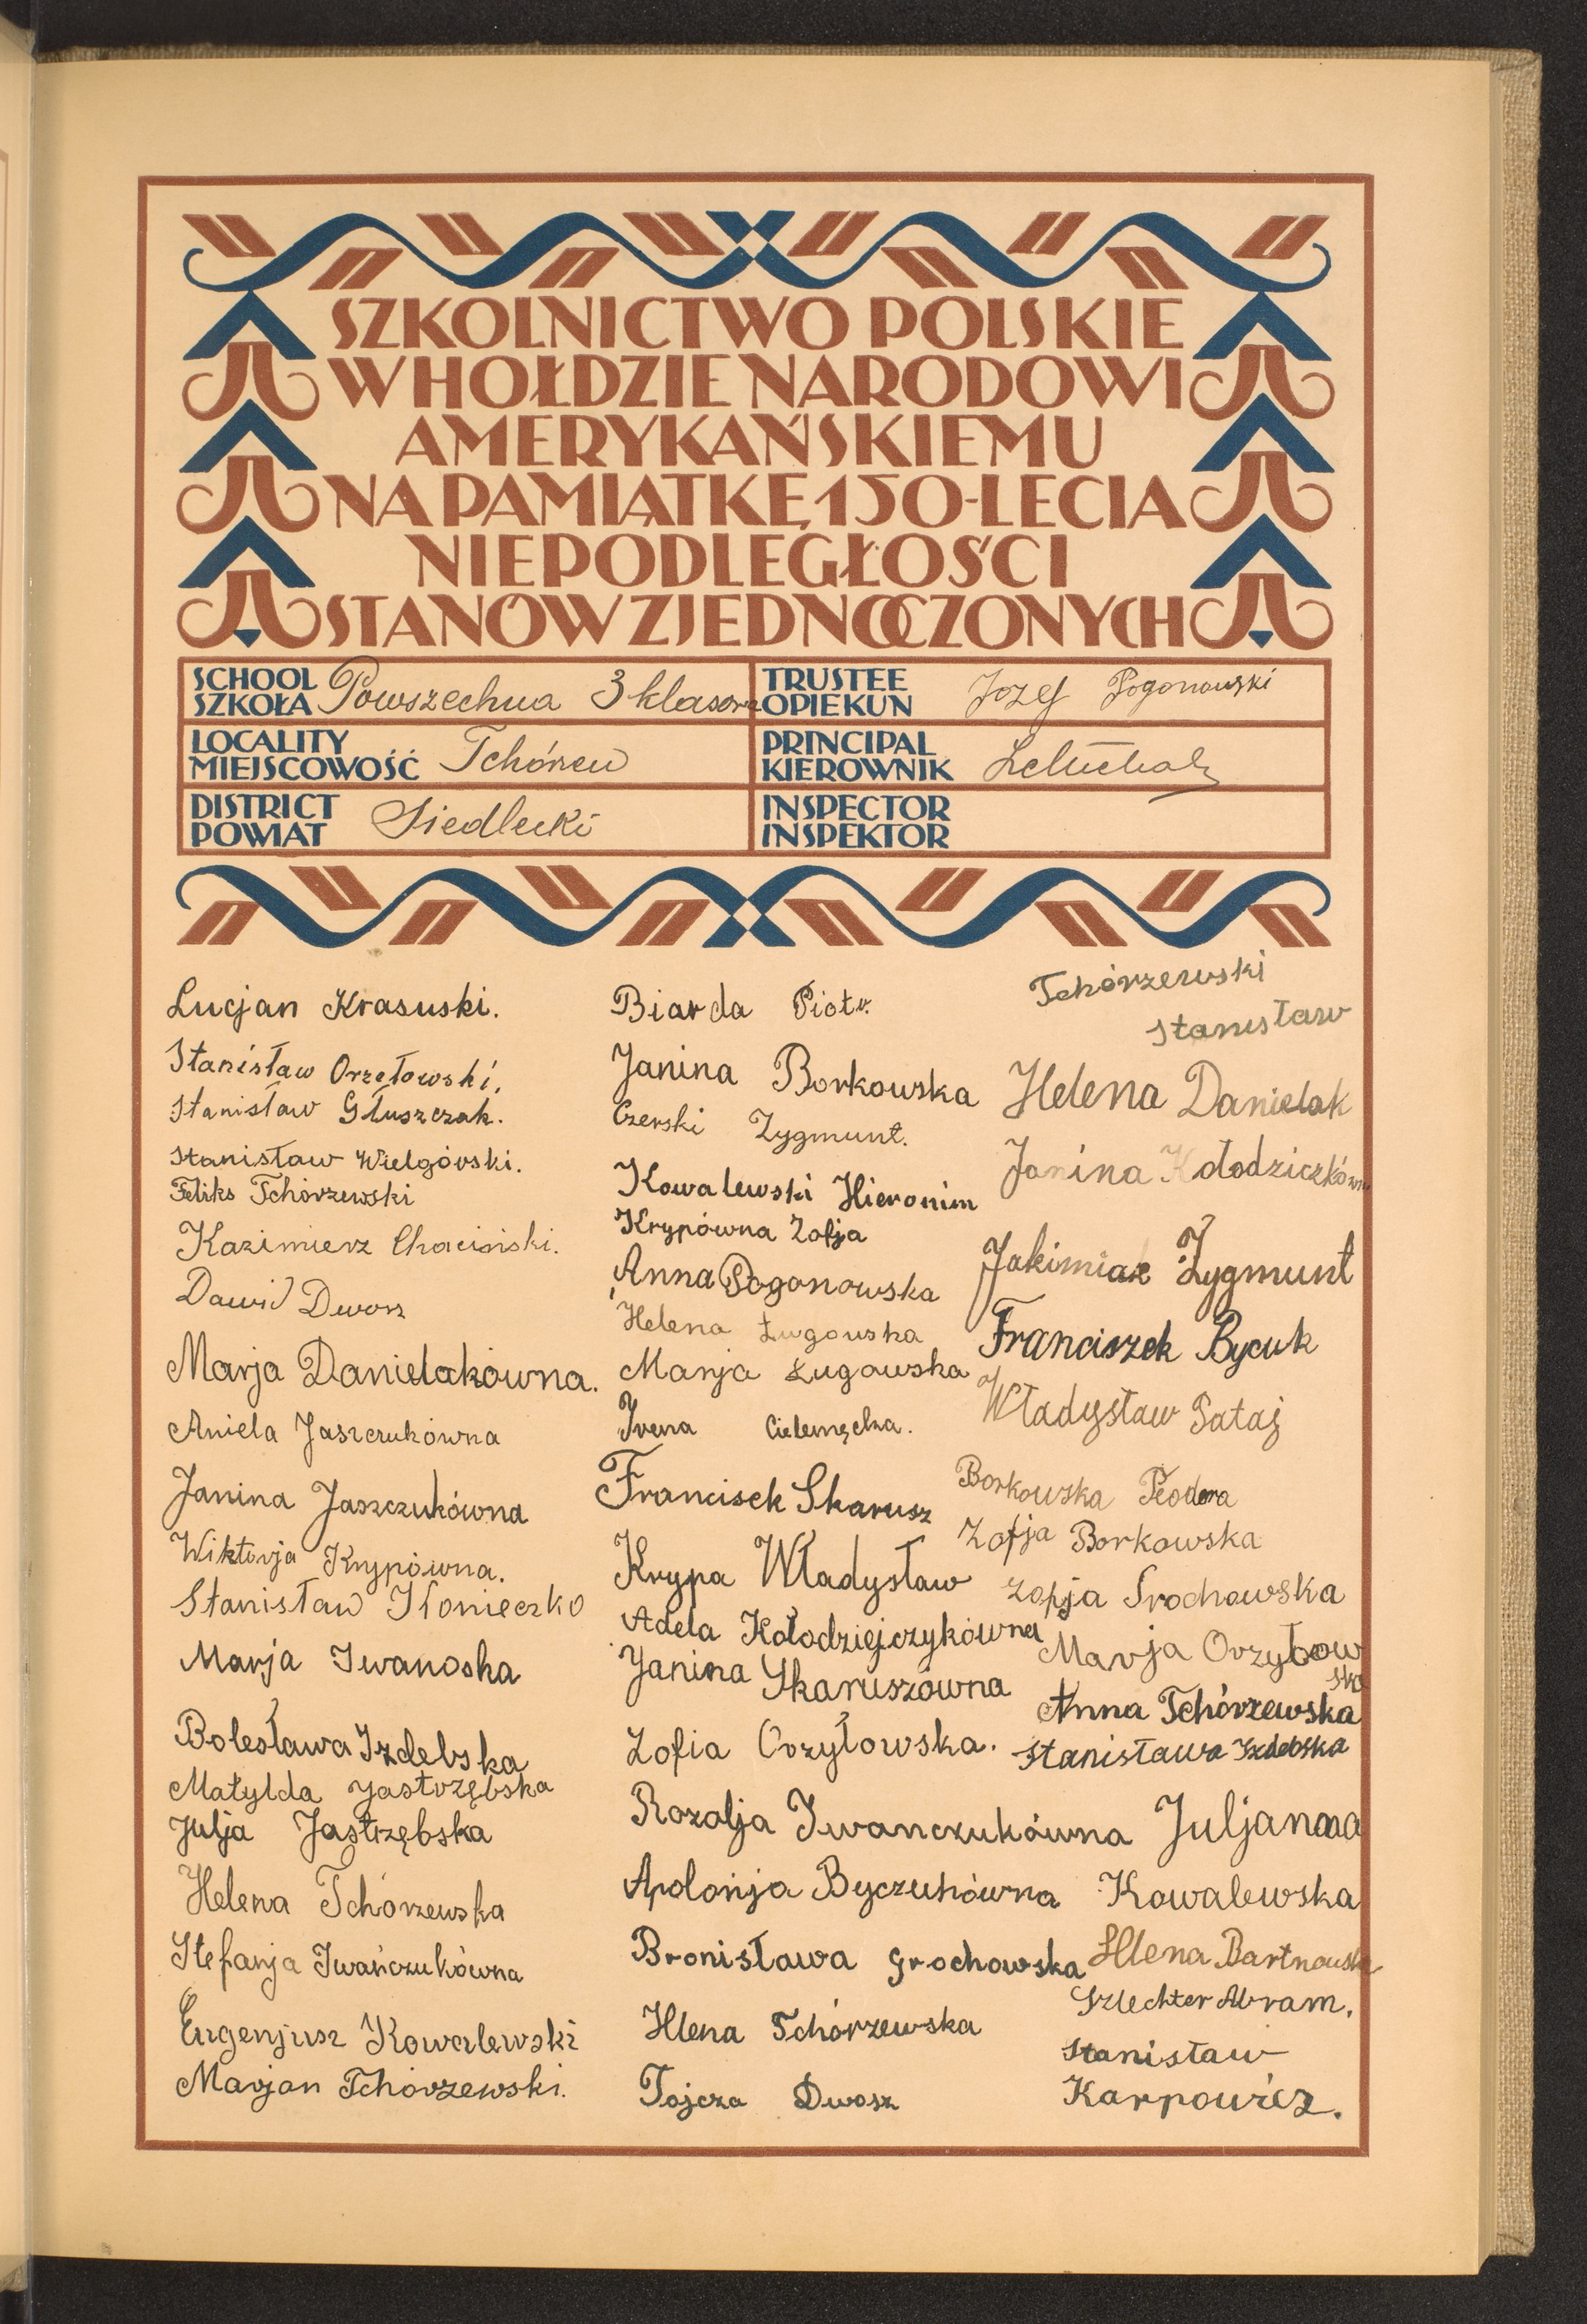 SZKOLNICTWO POLSKIE
W HOŁDZIE NARODOWI
AMERYKAŃSKIEMU
NA PAMIĄTKĘ 150-LECIA
NIEPODLEGŁOŚCI
STANÓW ZJEDNOCZONYCH
SCHOOL
SZKOŁA Powszechna 3 klasowa
TRUSTEE
OPIEKUN Jozef Pogonowski
LOCALITY
MIEJSCOWOŚĆ Tchórzew
PRINCIPAL
KIEROWNIK
DISTRICT
POWIAT Siedlecki
INSPECTOR
INSPEKTOR
Lucjan Krasuski.
Stanisław Orzełowski.
Stanisław Głuszczak.
Stanisław Wielgórski.
Feliks Tchórzewski
Kazimierz Chaciński.
Dawid Dworz
Marja Danielakówna.
Aniela Jaszczukówna
Janina Jaszczukówna
Wiktorja Krypówna.
Stanisław Konieczko
Marja Iwanoska
Bolesława Izdebska
Matylda Jastrzębska
Julja Jastrzębska
Helena Tchórzewska
Stefanja Iwańczukówna
Eugenjusz Kowalewski
Marjan Tchórzewski.
Biarda Piotr.
Janina Borkowska
Czerski Zygmunt.
Kowalewski Hieronim
Krypówna Zofja
Anna Pogonowska
Helena Ługowska
Marja Ługowska
Irena Cielemęcka.
Francisek Skarusz
Krypa Władysław
Adela Kołodziejczykówna
Janina Skaruszówna
Zofia Orzyłowska.
Rozalja Iwanczukówna
Apolonja Byczukówna
Bronisława Grochowska
Hlena Tchórzewska
Tojcza Dwosz
Tchórzewski
Stanisław
Helena Danielak
Janina Kołodziczkówna
Jakimiak Zygmunt
Franciszek Bycuk
Władysław Pataj
Borkowska Teodora
Zofja Borkowska
Zofja Srochowska
Marja Orzyłow
ska
Anna Tchórzewska
Stanisława Izdebska
Juljanna
Kowalewska
Hlena Bartnowska
Szlechter Abram.
Stanisław
Karpowicz.